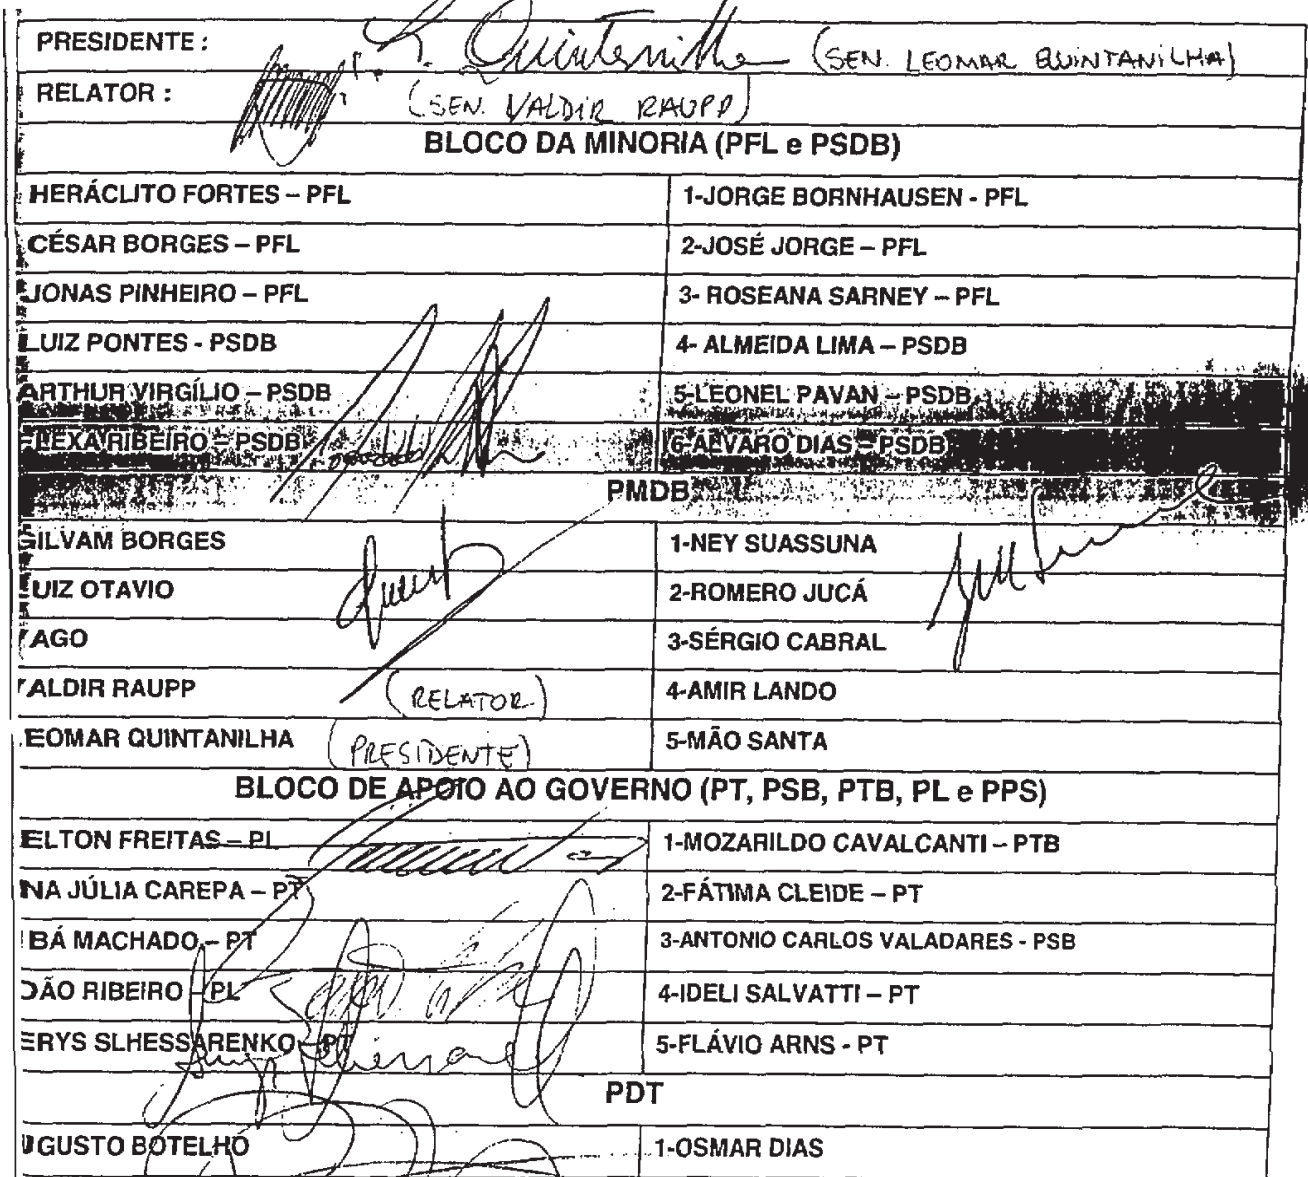 PRESIDENTE : Quintanilha (SEN. LEOMAR QUINTANILHA)
RELATOR : (SEN. VALDIR RAUPP)
BLOCO DA MINORIA (PFL e PSDB)
HERÁCLITO FORTES – PFL 1-JORGE BORNHAUSEN - PFL
CÉSAR BORGES – PFL 2-JOSÉ JORGE – PFL
JONAS PINHEIRO – PFL 3- ROSEANA SARNEY – PFL
LUIZ PONTES - PSDB 4- ALMEIDA LIMA – PSDB
ARTHUR VIRGÍLIO – PSDB 5-LEONEL PAVAN – PSDB
FLEXA RIBEIRO – PSDB 6-ALVARO DIAS – PSDB
PMDB
GILVAM BORGES 1-NEY SUASSUNA
UIZ OTAVIO 2-ROMERO JUCÁ
AGO 3-SÉRGIO CABRAL
ALDIR RAUPP (RELATOR) 4-AMIR LANDO
EOMAR QUINTANILHA (PRESIDENTE) 5-MÃO SANTA
BLOCO DE APOIO AO GOVERNO (PT, PSB, PTB, PL e PPS)
ELTON FREITAS – PL 1-MOZARILDO CAVALCANTI – PTB
NA JÚLIA CAREPA – PT 2-FÁTIMA CLEIDE – PT
BÁ MACHADO – PT 3-ANTONIO CARLOS VALADARES - PSB
OÃO RIBEIRO – PL 4-IDELI SALVATTI – PT
ERYS SLHESSARENKO – PT 5-FLÁVIO ARNS - PT
PDT
UGUSTO BOTELHO 1-OSMAR DIAS